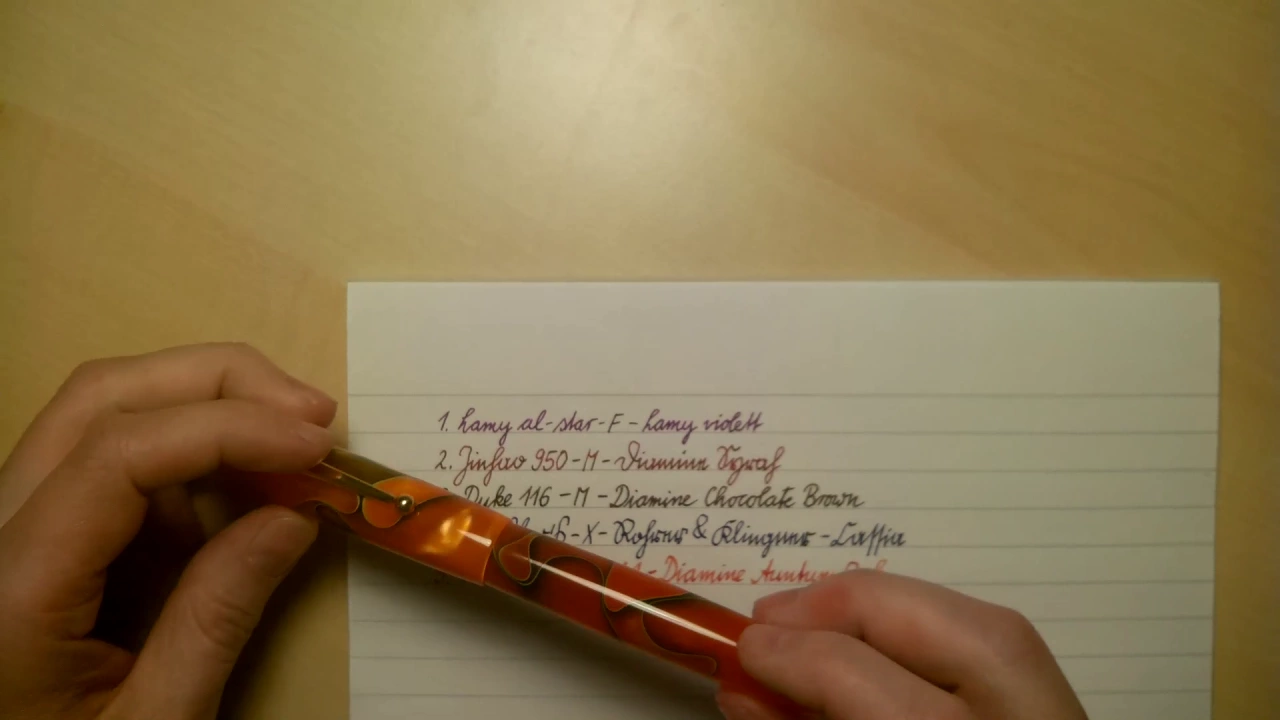 1. Lamy al-star-F - Lamy violett
2. Jinhao 950-M - Diamine Syrah
Duke 116 - M - Diamine Chocolate Brown
-X- Rohrer & Klingner - Cassia
- Diamine Autumn